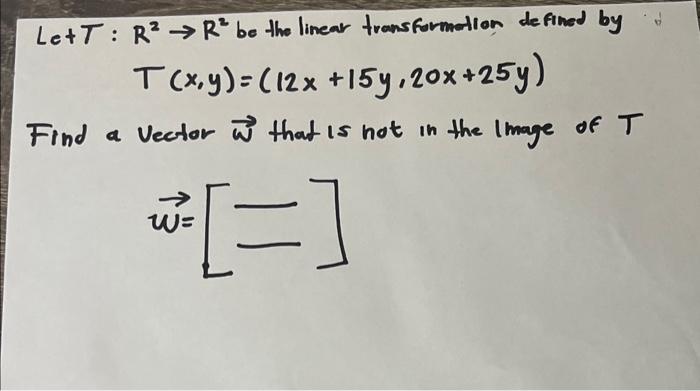 Let T : R² → R² be the linear transformation defined by
T(x,y)=(12x+15y,20x+25y)
Find a vector w⃗ that is not in the Image of T
w⃗= [ — — ]